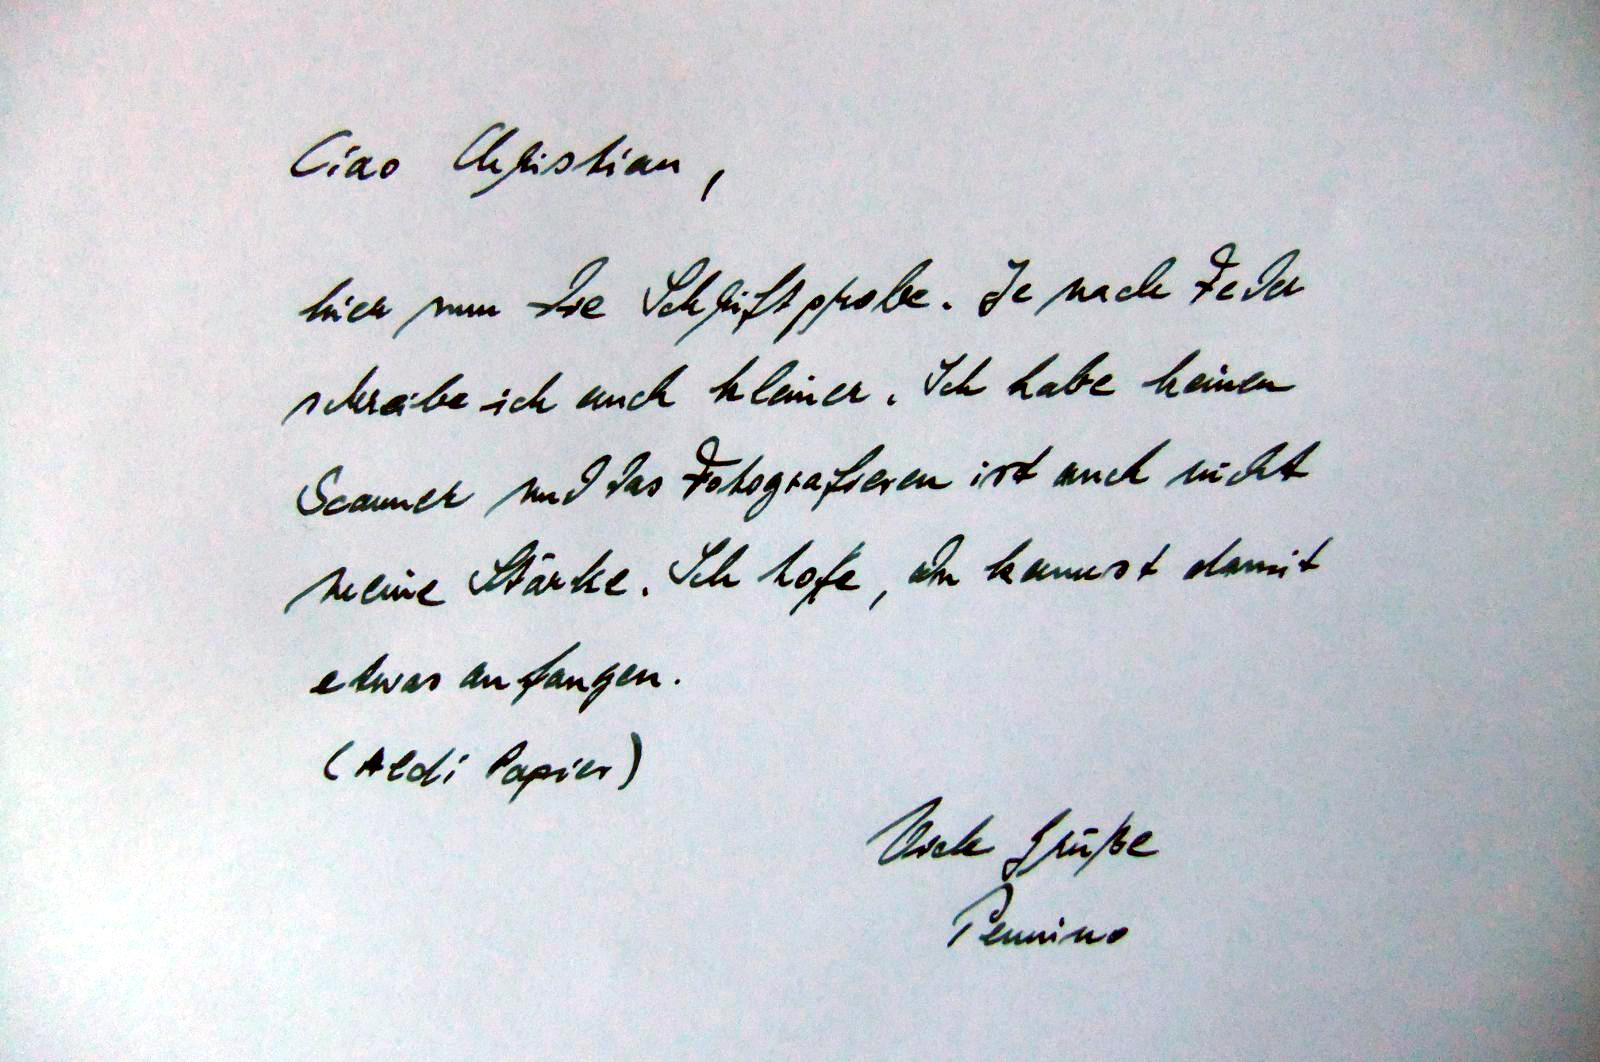 Ciao Christian,
hier nun die Schriftprobe. Je nach Feder
schreibe ich auch kleiner. Ich habe keinen
Scanner und das Fotografieren ist auch nicht
meine Stärke. Ich hoffe, du kannst damit
etwas anfangen.
(Aldi Papier)
Viele Grüße
Pennino